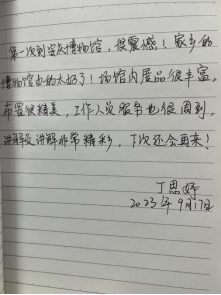 第一次到安庆博物馆，很震感！家乡的
博物馆办的太好了！场馆内展品很丰富，
布置很精美，工作人员服务也很周到，
讲解员讲解非常精彩，下次还会再来！
丁思婷
2023年9月17日